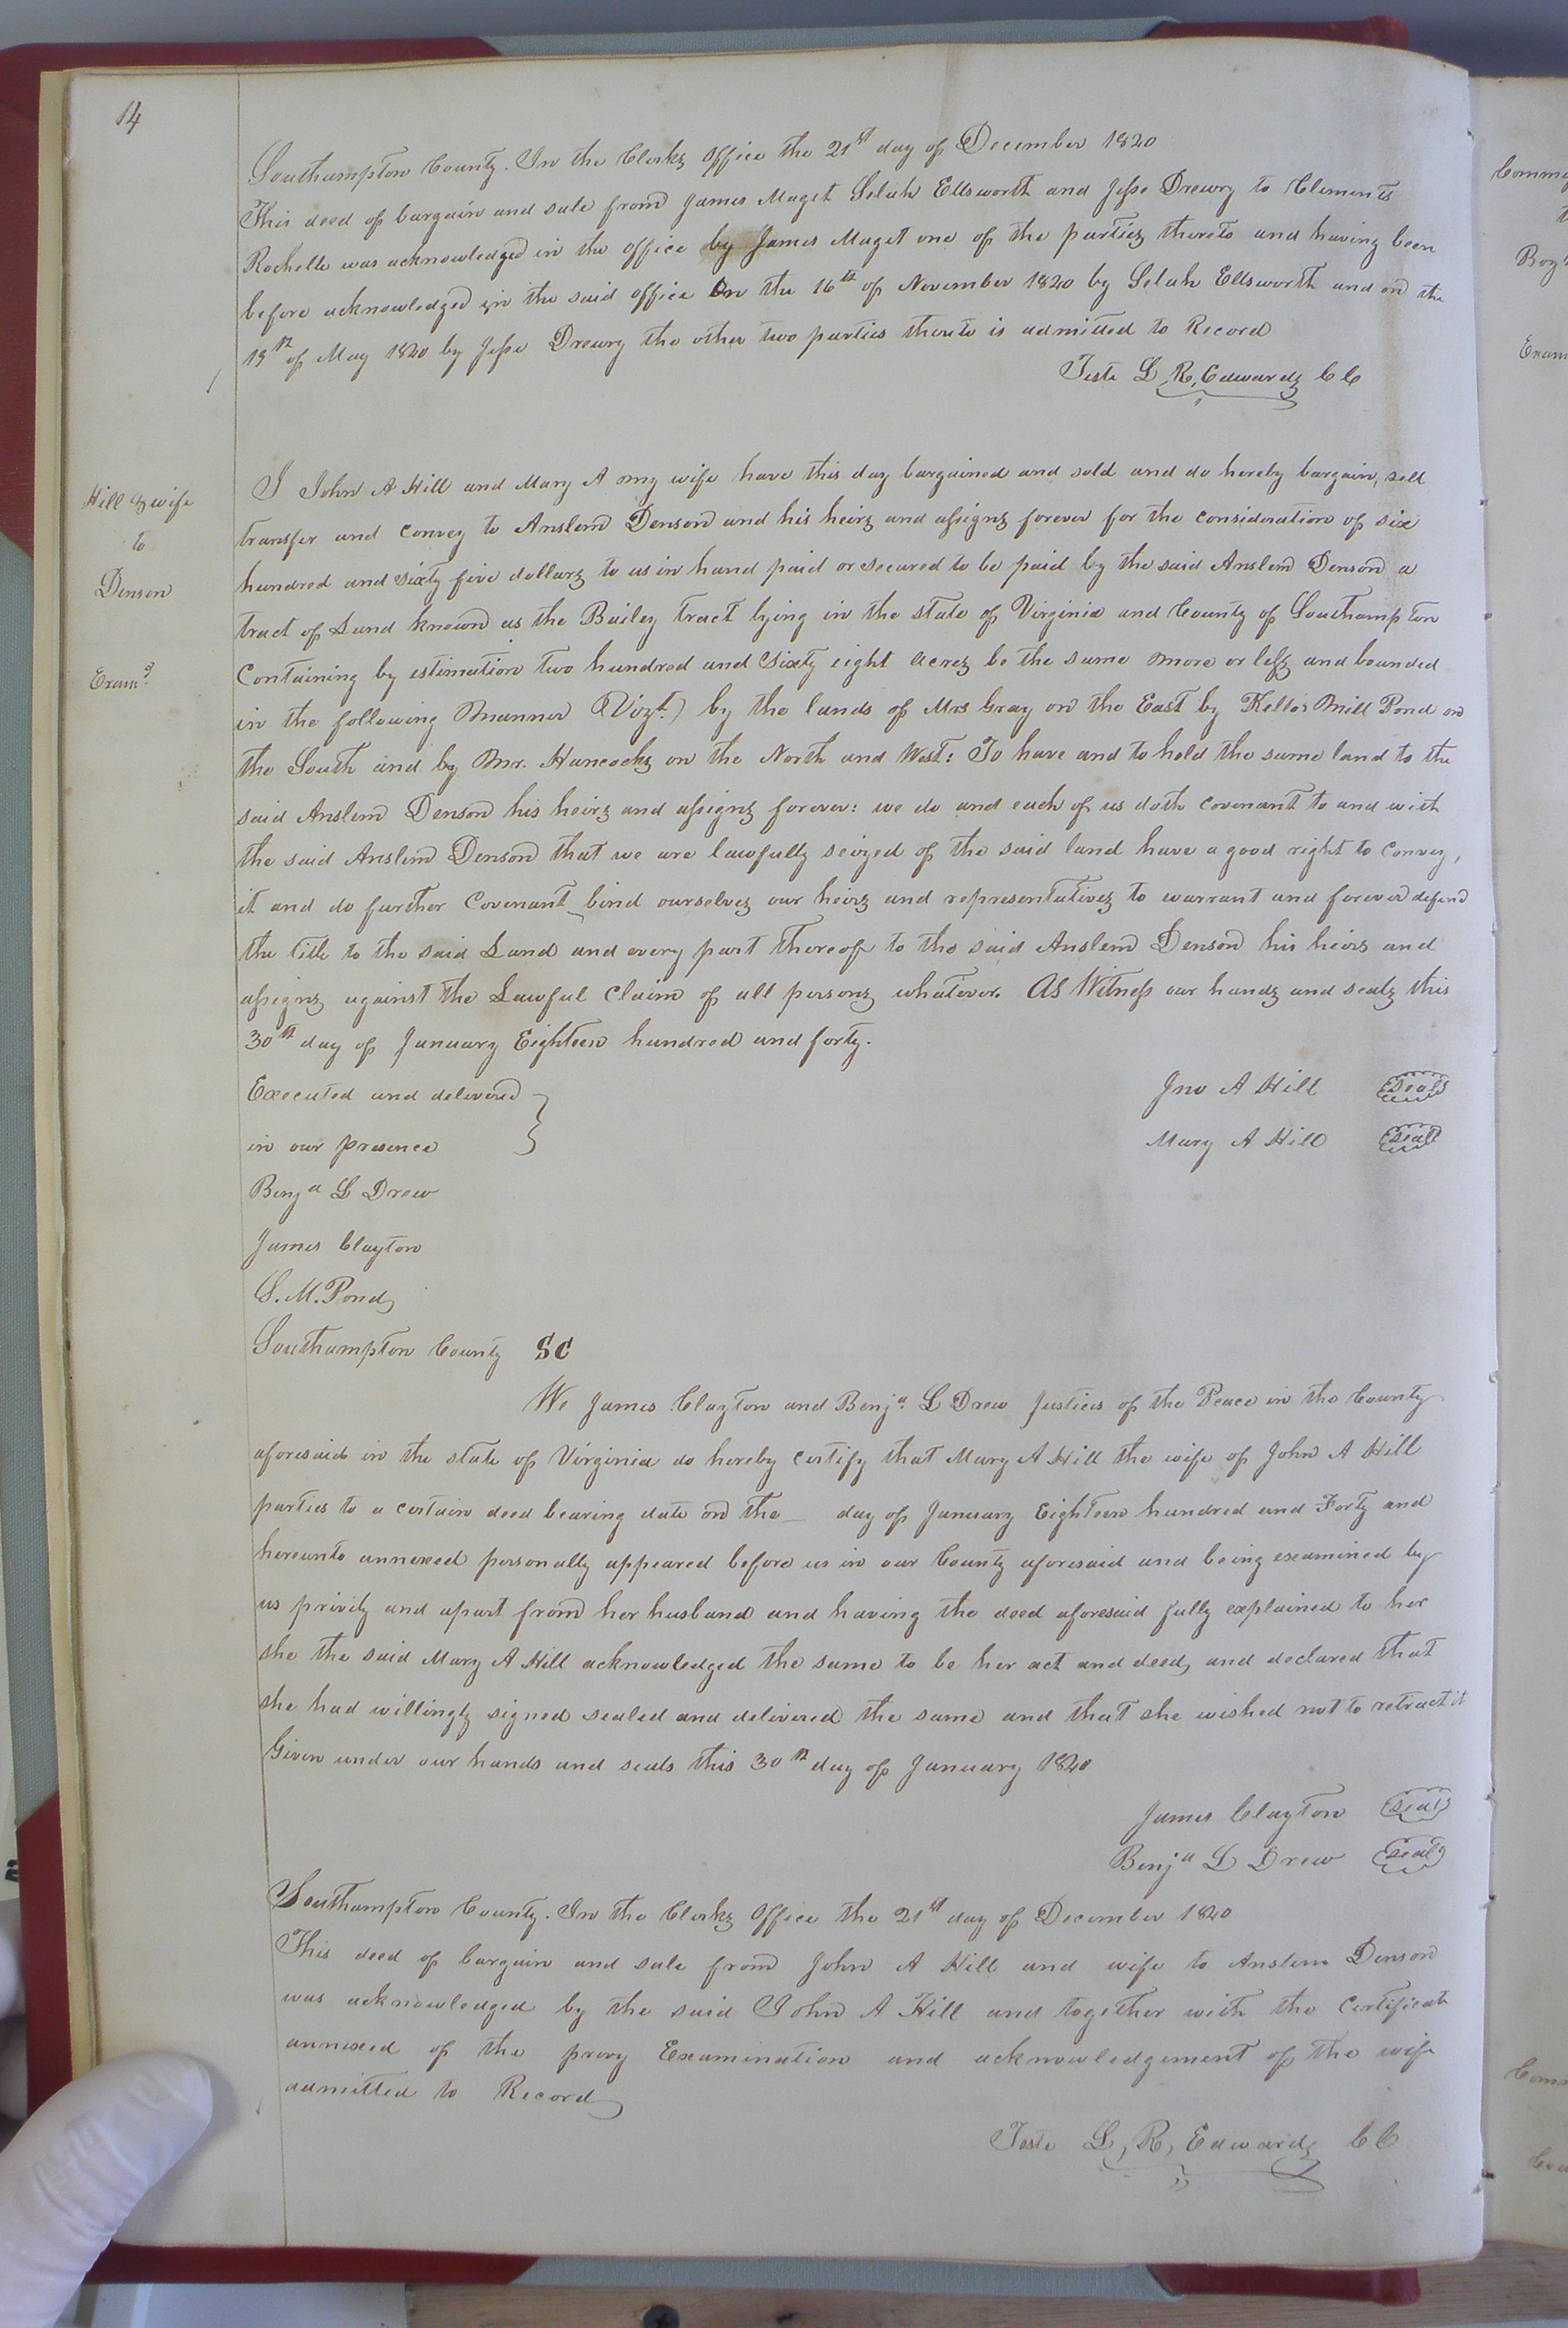 14
Southampton County. In the Clerks Office the 21st day of December 1840
This deed of bargain and sale from James Maget Selah Ellsworth and Jesse Drewry to Clements
Rochelle was acknowledged in the office by James Maget one of the parties thereto and having been
before acknowledged in the said office On the 16th of November 1840 by Selah Ellsworth and on the
18th of May 1840 by Jesse Drewry the other two parties thereto is admitted to Record
Teste L R, Edwards CC
Hill & wife
to
Denson
Examd
I John A Hill and Mary A my wife have this day bargained and sold and do hereby bargain, sell
transfer and convey to Anslem Denson and his heirs and assigns forever for the consideration of six
hundred and sixty five dollars to us in hand paid or secured to be paid by the said Anslem Denson a
tract of Land known as the Bailey tract lying in the state of Virginia and County of Southampton
Containing by estimation two hundred and Sixty eight acres be the same more or less and bounded
in the following manner (Vizt.) by the lands of Mrs Gray on the East by Kello's Mill Pond on
the South and by Mr. Hancocks on the North and West: To have and to hold the same land to the
said Anslem Denson his heirs and assigns forever: we do and each of us doth covenant to and with
the said Anslem Denson that we are lawfully seized of the said land have a good right to convey,
it and do further Covenant bind ourselves our heirs and representatives to warrant and forever defend
the title to the said Land and every part thereof to the said Anslem Denson his heirs and
assigns against the Lawful Claim of all persons whatever. As Witness our hands and seals this
30th day of January Eighteen hundred and forty.
Executed and delivered
in our presence
Jno A Hill Seal
Mary A Hill Seal
Benja L Drew
James Clayton
S. M. Pond
Southampton County SC
We James Clayton and Benja L Drew Justices of the Peace in the County
aforesaid in the state of Virginia do hereby certify that Mary A Hill the wife of John A Hill
parties to a certain deed bearing date on the _ day of January Eighteen hundred and Forty and
hereunto annexed personally appeared before us in our County aforesaid and being examined by
us privily and apart from her husband and having the deed aforesaid fully explained to her
she the said Mary A Hill acknowledged the same to be her act and deed, and declared that
she had willingly signed sealed and delivered the same and that she wished not to retract it
Given under our hands and seals this 30th day of January 1840
James Clayton Seal
Benja L Drew Seal
Southampton County. In the Clerks Office the 21st day of December 1840
This deed of bargain and sale from John A Hill and wife to Anslem Denson
was acknowledged by the said John A Hill and together with the Certificate
annexed of the privy Examination and acknowledgement of the wife
admitted to Record
Teste L, R, Edwards CC